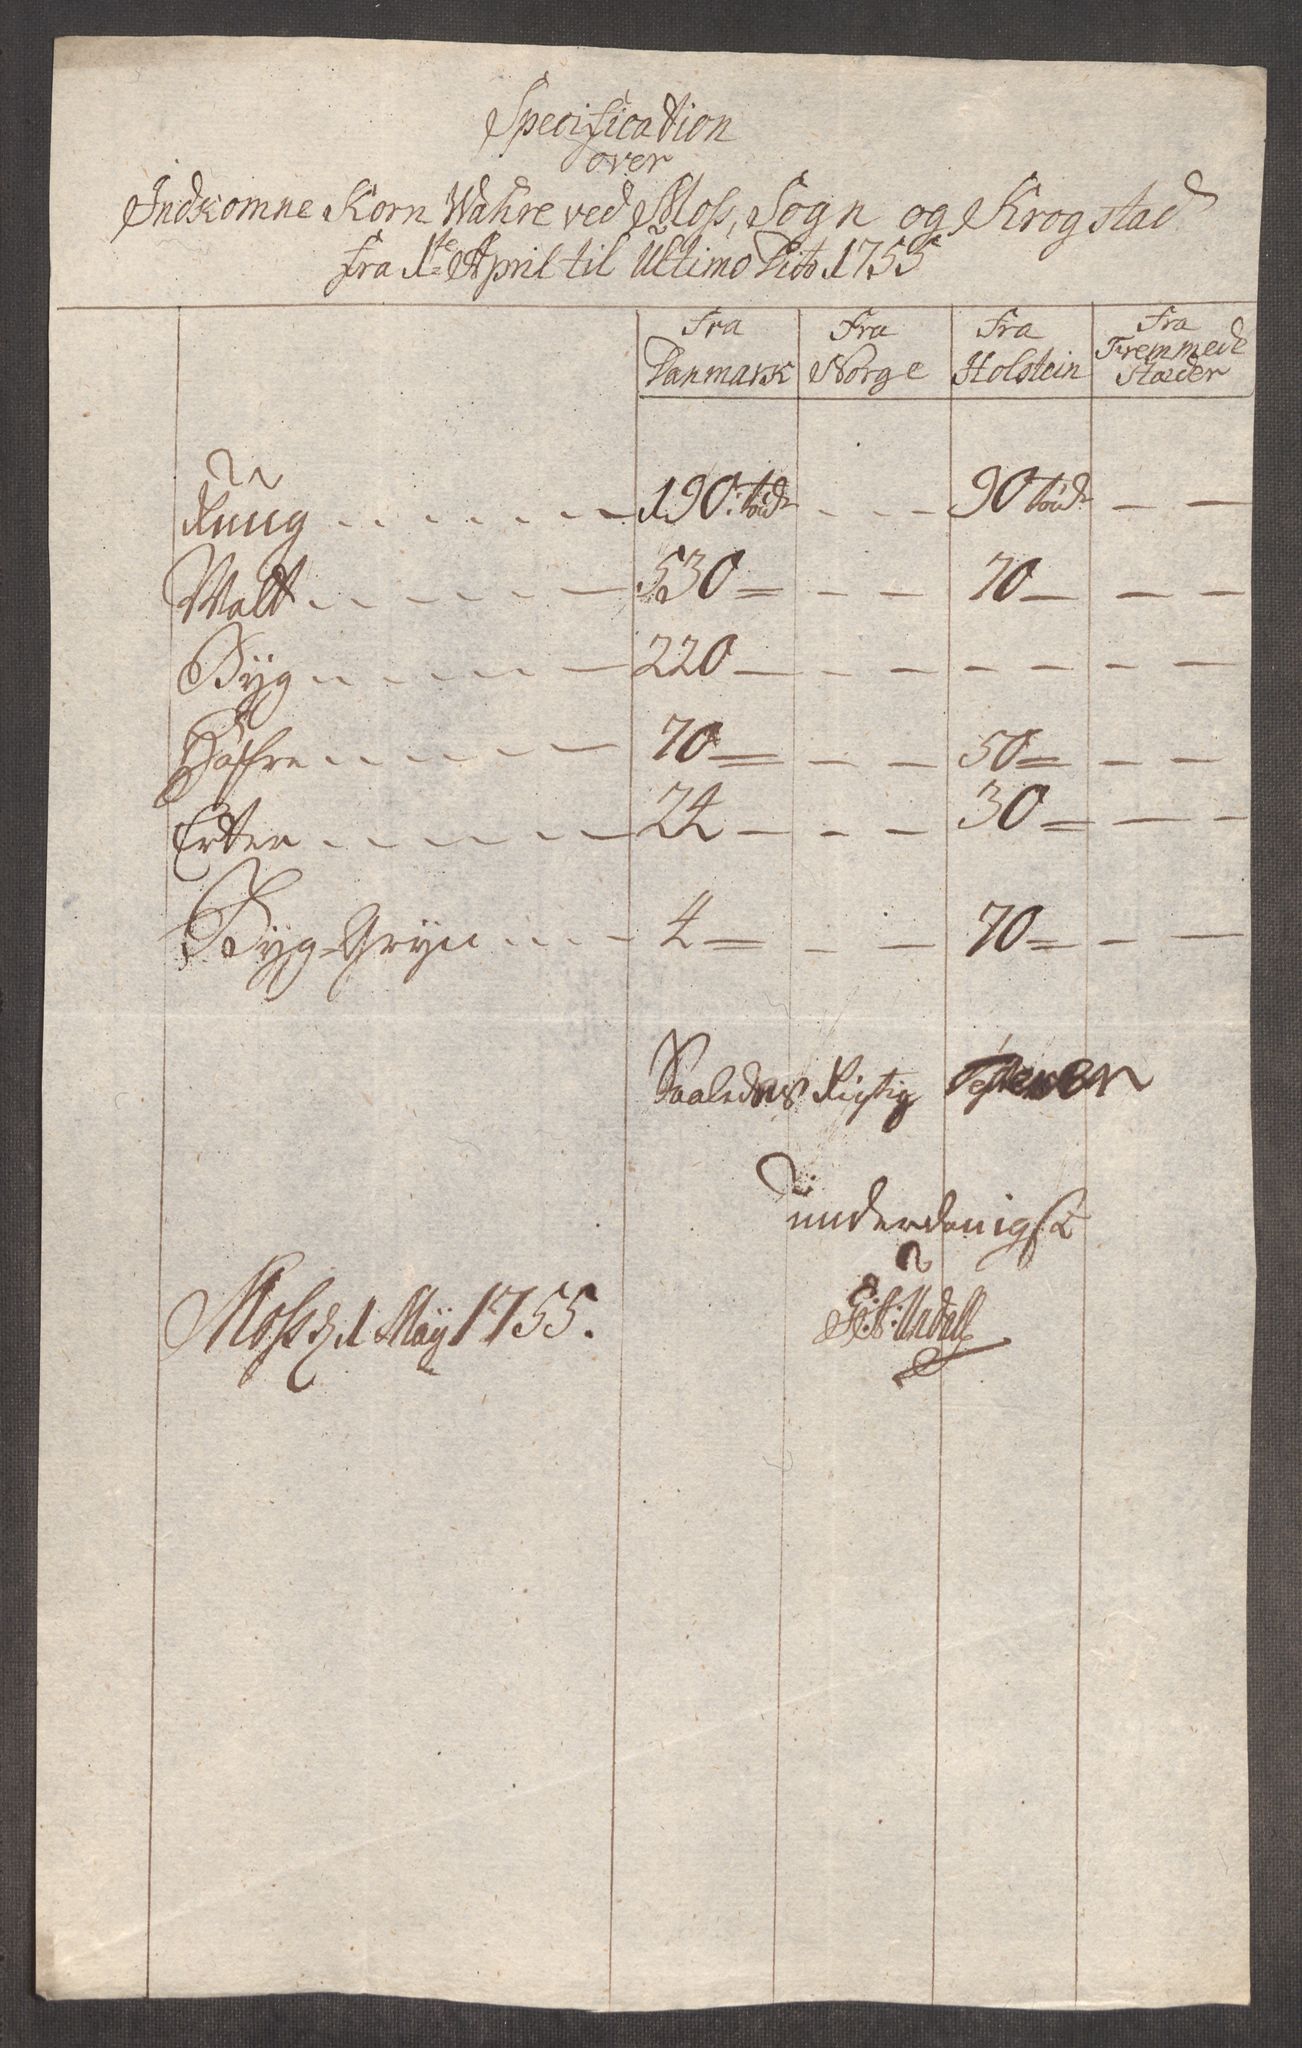 Specification
over
Indkomne Korn Wahre ved Moss, Sogn og Krogstad
fra 1te April til Ultimo Dito 1755
Fra Danmark | Fra Norge | Fra Holstein | Fra Fremmede Stæder
Rüüg . . . . . . 190: tönd. - - - 90 tönd. - -
Malt . . . . . 530 = - - 70 - - -
Byg . . . . . 220 - - - - - - -
Hafre . . . . . 70 = - - 50 = - -
Erter . . . . . 24 - - - 30 = - -
Byg-Gryn . . . . 4 = - - 70 = - -
Saaledes Rigtig
underdanigst
Moss d. 1 Maÿ 1755.